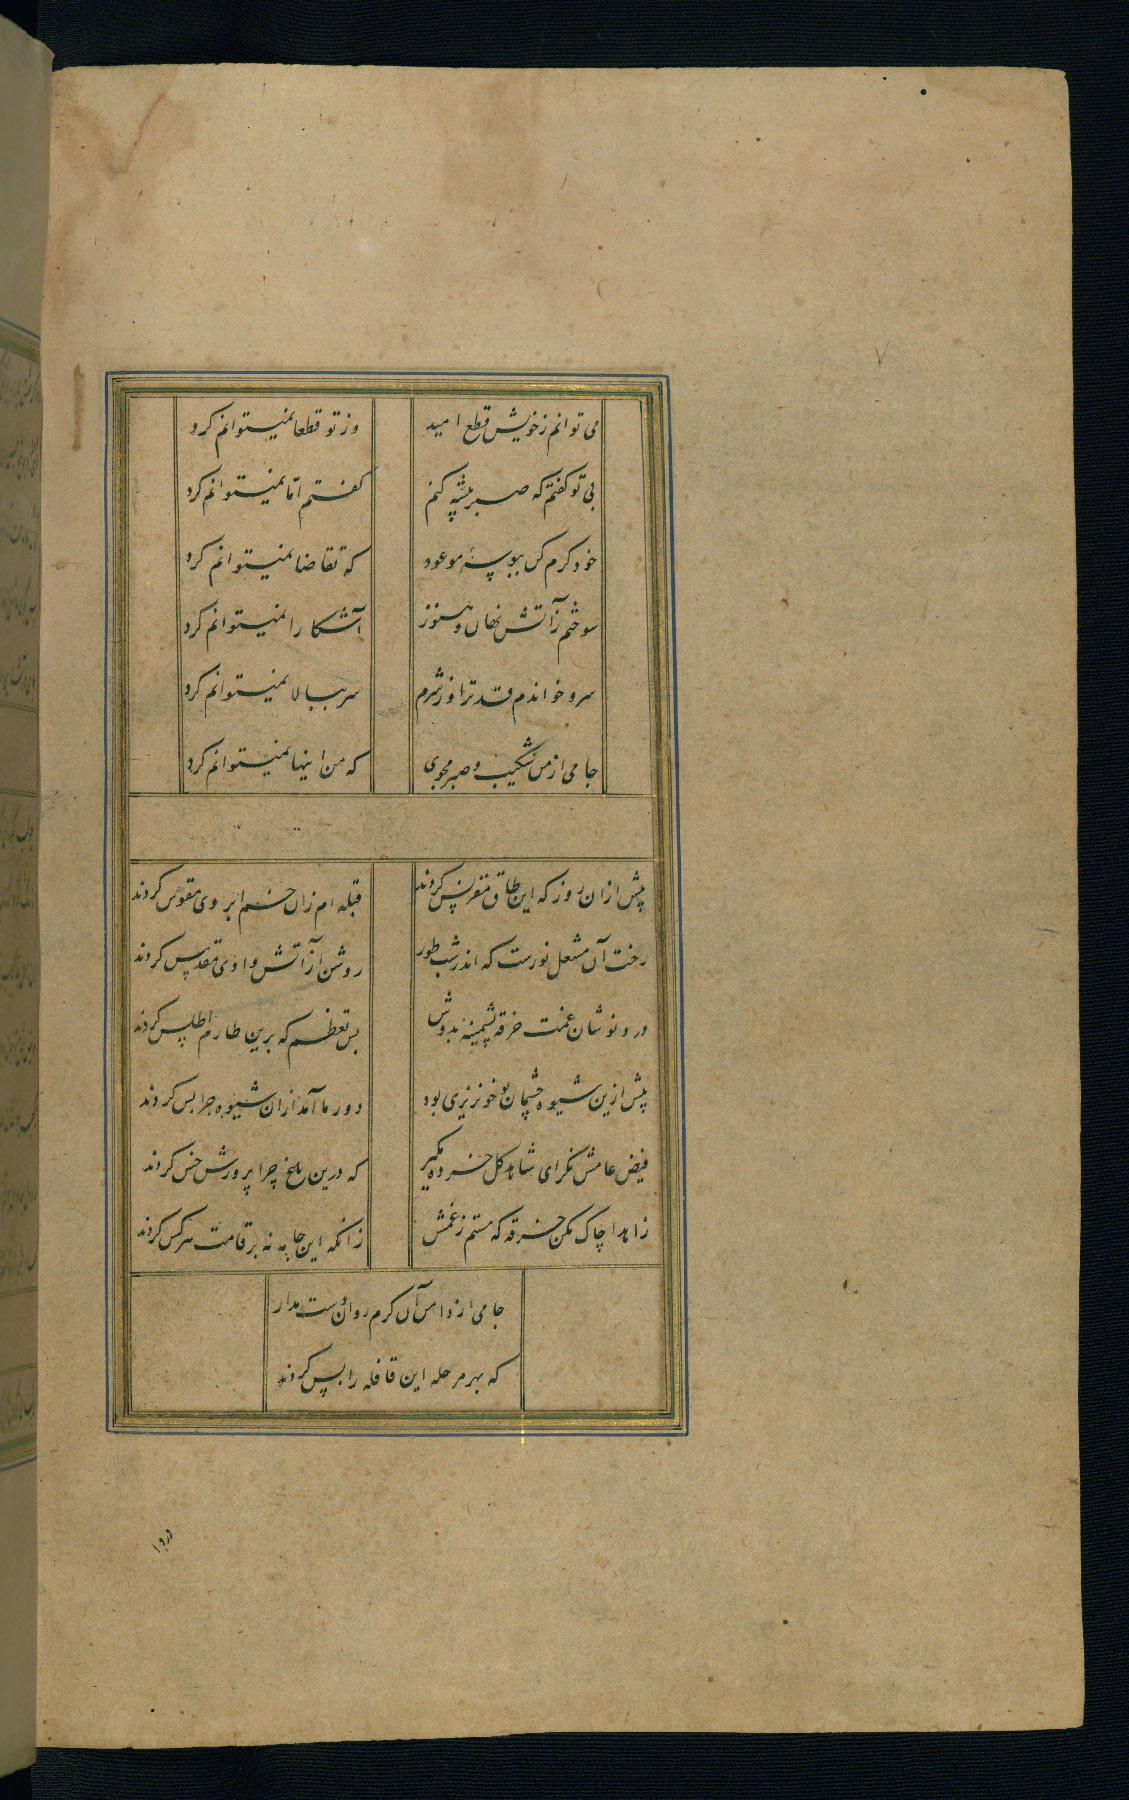 می توانم زخویش قطع امید وز تو قطعا نمیتوانم کرد
بی تو گفتم که صبر پیشه کنم گفتم اما نمیتوانم کرد
خود کرم کن ببوسه موعود که تقاضا نمیتوانم کرد
سوختم زآتش نهان و هنوز آشکارا نمیتوانم کرد
سرو خواندم قد ترا وز شرم سر ببالا نمیتوانم کرد
جامی از من شکیب و صبر مجوی که من اینها نمیتوانم کرد
پیش ازان روز که این طاق مقرنس کردند قبله ام زان خم ابروی مقوس کردند
رخت آن مشعل نورست که اندر شب طور روشن از آتش وادی مقدس کردند
درد نوشان غمت خرقه پشمینه بدوش بس تعظم که برین طارم اطلس کردند
پیش ازین شیوه چشمان تو خونریزی بود دور ما آمد ازان شیوه چرا بس کردند
فیض عامش نگر ای شاهد گل خرده مگیر که درین باغ چرا پرورش خس کردند
زاهدا چاک مکن خرقه که مستم زغمش زانکه این جامه نه بر قامت هر کس کردند
جامی از دامن آن کرم روان دست مدار
که بهر مرحله این قافله را پس کردند